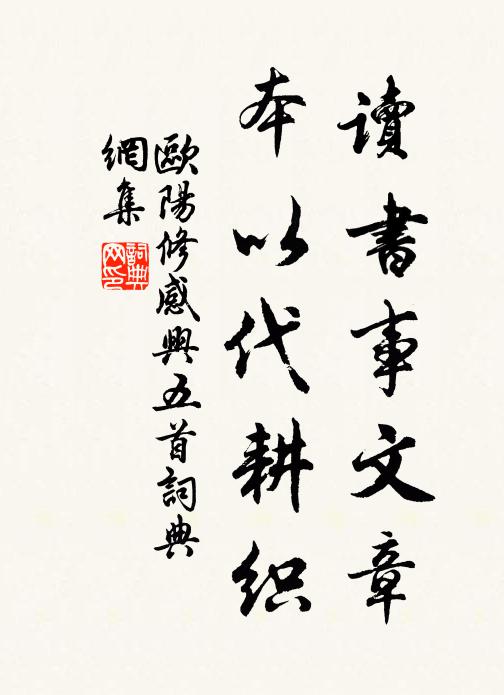 讀書事文章
本以代耕织
歐陽修感興五首詞典
網集
詞典網印